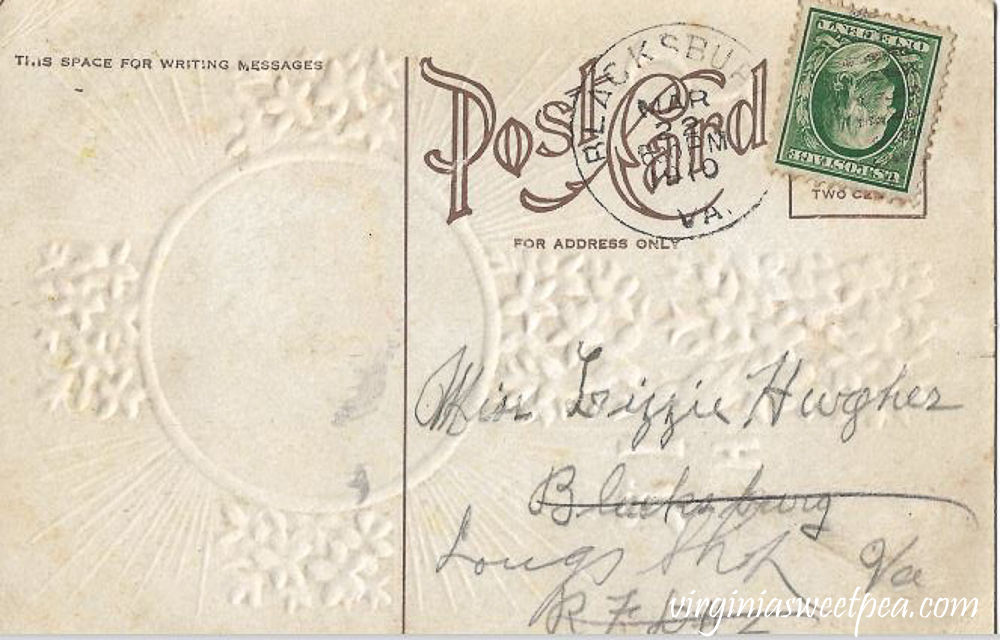 THIS SPACE FOR WRITING MESSAGES
Post Card
BLACKSBU
MAR
22
PM
1910
VA.
ONE CENT
U.S. POSTAGE
TWO CE
FOR ADDRESS ONLY
Miss Lizzie Hughes
Blacksburg
Longs Shop Va
R F D
virginiasweetpea.com